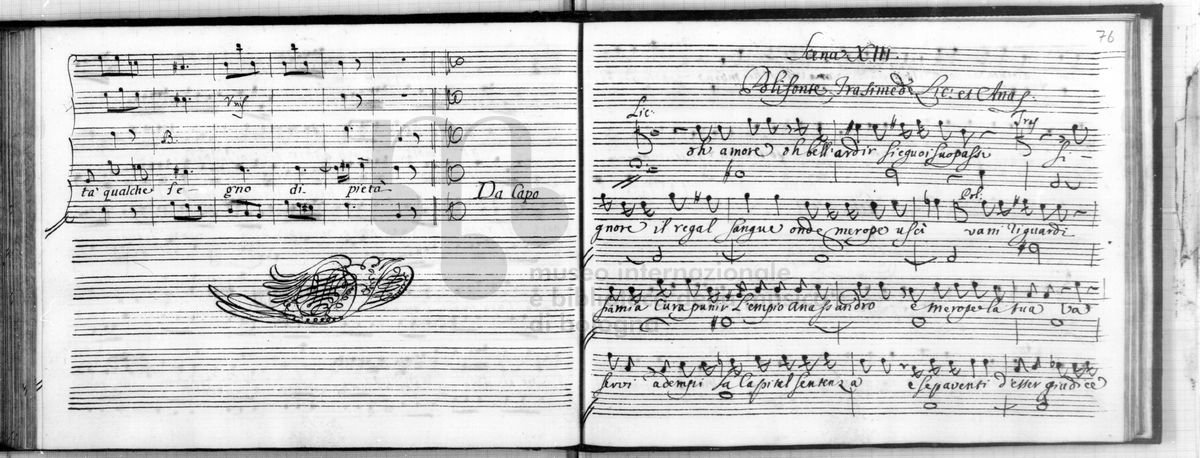 ta' qualche se gno di pietà
Da Capo
76
Scena XIII.
Polifonte Trasimede Lic: et Anas.
Lic:
Tras
oh amore oh bell' ardir sieguoi suo passi Si-
Pol:
gnore il regal sangue onde merope uscì vani riguardi
sia mia Cura punir L'empio Anassandro e merope la tua Va
servi adempi La Capital sentenza e se paventi d'esser giudice
museo internazionale
e bibl
di bologna